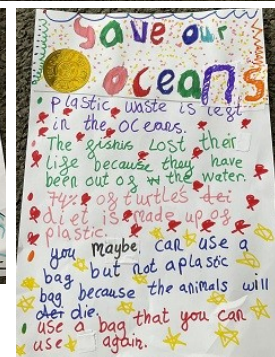 Save our
oceans
Plastic waste is left
in the oceans.
The fishis lost their
life because they have
been out of w the water.
74% of turtles dei
diet is made up of
plastic.
you maybe can use a
bag but not aplastic
bag because the animals will
der die.
use a bag that you can
use again.